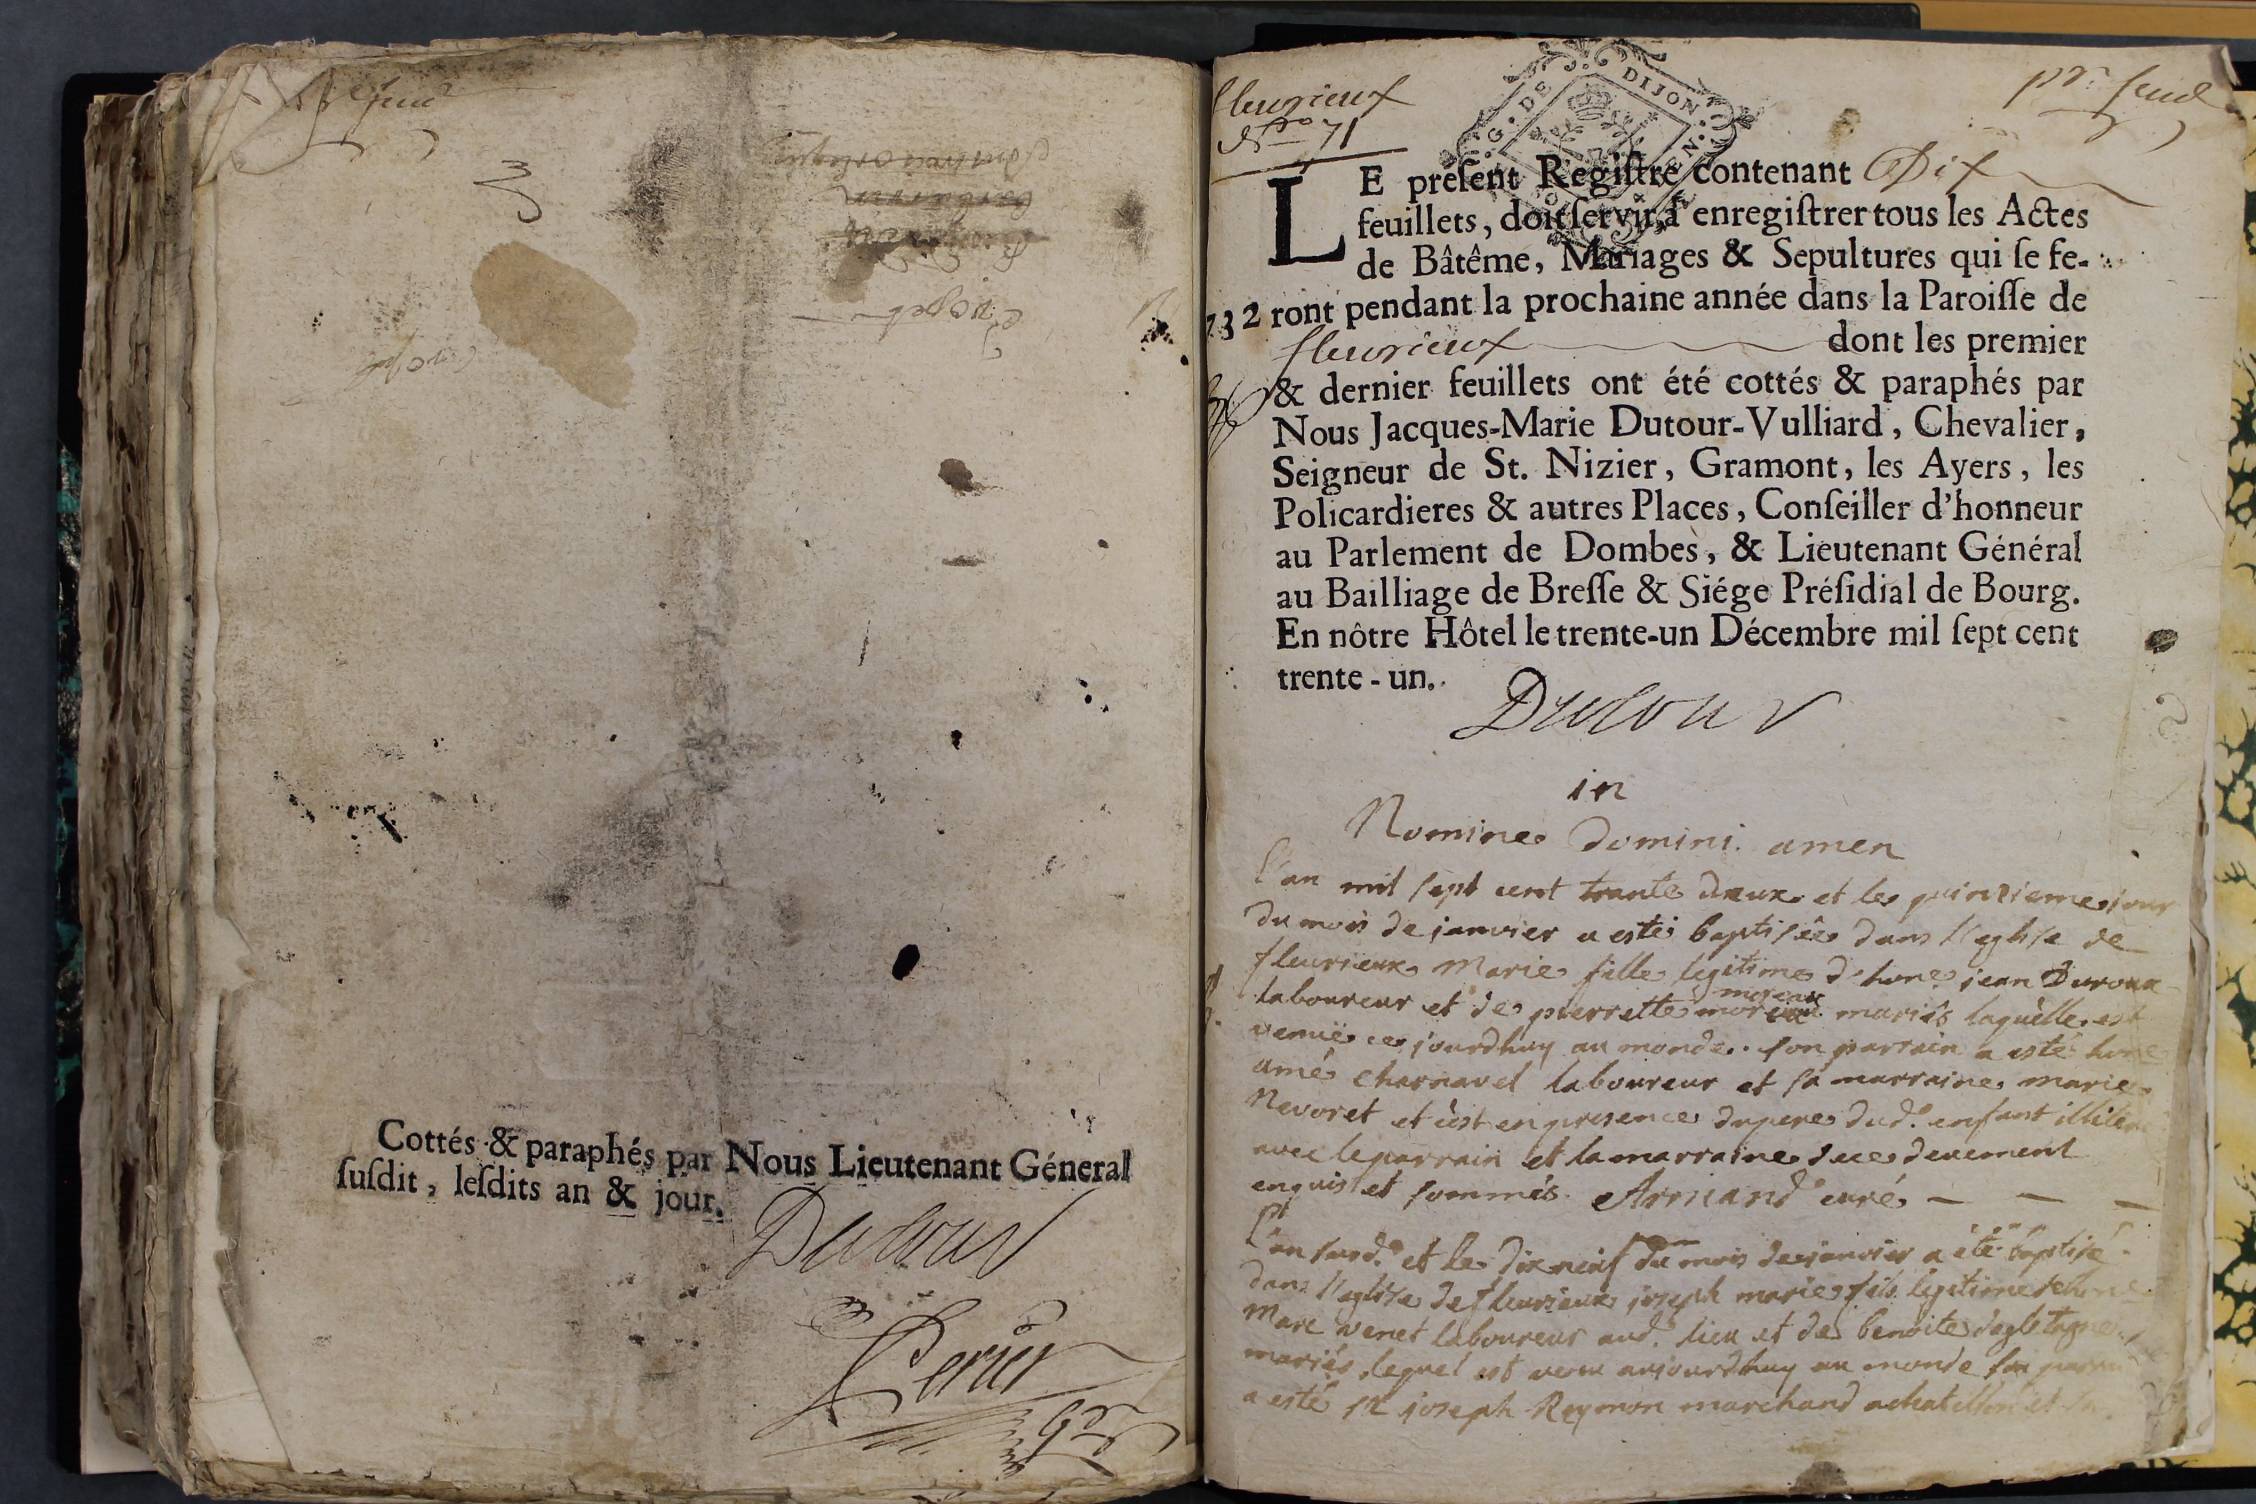 Cottés & paraphés par Nous Lieutenant Géneral
ſuſdit, leſdits an & jour.
Dutour
Perier
fleurieux
N.ro 71
G. DE DIJON
pr. feuil
LE préſent Regiſtre contenant Dix
feuillets, doit ſervir à enregiſtrer tous les Actes
de Bâtême, Mariages & Sepultures qui ſe fe-
ront pendant la prochaine année dans la Paroiſſe de
732
fleurieux dont les premier
& dernier feuillets ont été cottés & paraphés par
Nous Jacques-Marie Dutour-Vulliard, Chevalier,
Seigneur de St. Nizier, Gramont, les Ayers, les
Policardieres & autres Places, Conſeiller d'honneur
au Parlement de Dombes, & Lieutenant Général
au Bailliage de Breſſe & Siége Préſidial de Bourg.
En nôtre Hôtel le trente-un Décembre mil ſept cent
trente-un.
Dutour
in
Nomine domini. amen
l'an mil sept cent trante deux et le quinzieme jour
du mois de janvier a esté baptisée dans l'eglise de
fleurieux Marie fille legitime d'hone. jean Duroux
laboureur et de pierrette moreau mariés laquelle est
venuë ce jourdhuy au monde. son parrain a esté hone
amé charnavel laboureur et sa marraine marie
Nevoret et c'est en presence du pere dud. enfant illiteré
avec le parrain et la marraine de ce deuement
enquis et sommés. Armand curé
l'an susd. et le dix neuf du mois de janvier a été baptisé
dans l'eglise de fleurieux joseph marie fils legitime
Marc venet laboureur aud. lieu et de benoite
mariés lequel est venu aujourdhuy au monde son parrain
a esté sr joseph Reymon marchand a chatillon et sa